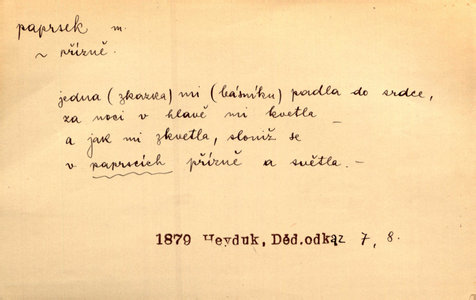 paprsek m.
~ přízně.
jedna (zkazka) mi (básníku) padla do srdce,
za noci v hlavě mi kvetla –
a jak mi zkvetla, sloniž se
v paprscích přízně a světla. –
1879 Heyduk, Děd.odkaz 7, 8.